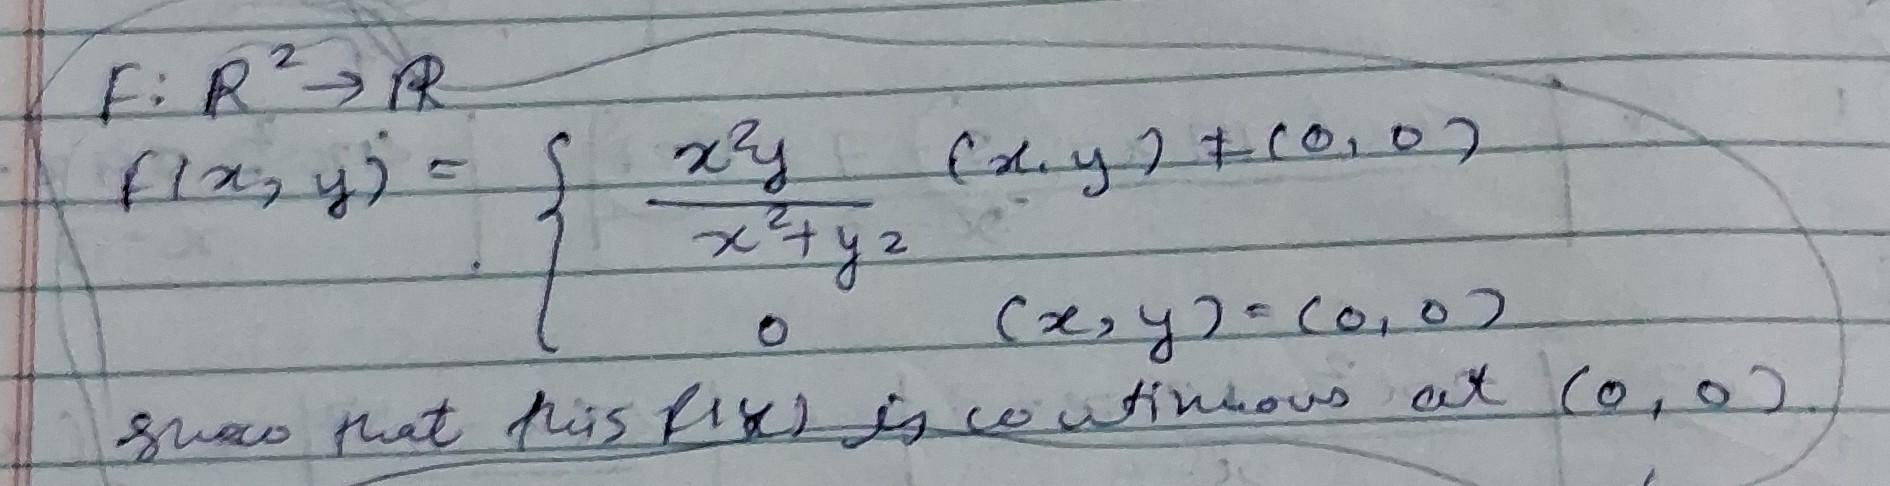 F: R² → R
f(x, y) = { x²y / x²+y² (x, y) ≠ (0, 0)
0 (x, y) = (0, 0)
show that this f(x) is continuous at (0, 0)